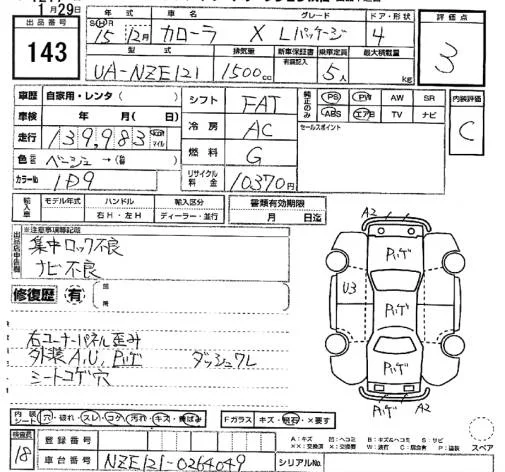 月29日
出品番号
143
年式 車名 グレード ドア・形状
SHR 15年 12月 カローラ X Lパッケージ 4
型式 排気量 新車保証書 乗車定員 最大積載量
有 記入
UA-NZE121 1500cc 5人 kg
評価点
3
車歴 自家用・レンタ( )
車検 年 月( 日)
走行 139,983 マイル
色 ベージュ →(替 )
カラーNo 1D9
シフト FAT
冷房 AC
燃料 G
リサイクル料金 10370円
純正のみ PS PW AW SR
ABS エアB TV ナビ
セールスポイント
内装評価
C
輸入車 モデル年式 ハンドル 輸入区分
右H・左H ディーラー・並行
書類有効期限
月 日迄
※注意事項等記載
集中ロック不良
ナビ不良
修復歴 有
右コーナーパネル歪み
外装A,U,Pハゲ ダッシュワレ
シートコゲ穴
A2
Pハゲ
U3
Pハゲ
Pハゲ
Pハゲ A2
内装シート 穴・破れ・スレ・コゲ・汚れ・キズ・黄ばみ
Fガラス キズ・飛石・×要す
スペア
検査員
18
登録番号
車台番号 NZE121-0264049
シリアルNo.
A:キズ U:ヘコミ B:キズ&ヘコミ S:サビ